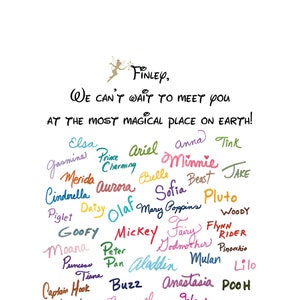 Finley,
We can't wait to meet you
at the most magical place on earth!
Elsa Ariel anna Tink
Jasmine Prince Charming Minnie
Merida Aurora Belle Beast JAKE
Cinderella Sofia Pluto
Piglet Daisy Olaf Mary Poppins WOODY
GOOFY MICKEY Fairy Godmother FLYNN RIDER
Moana Peter Pan Pinocchio
Princess Tiana Aladdin Mulan Lilo
Captain Hook BUZZ Anastasia POOH